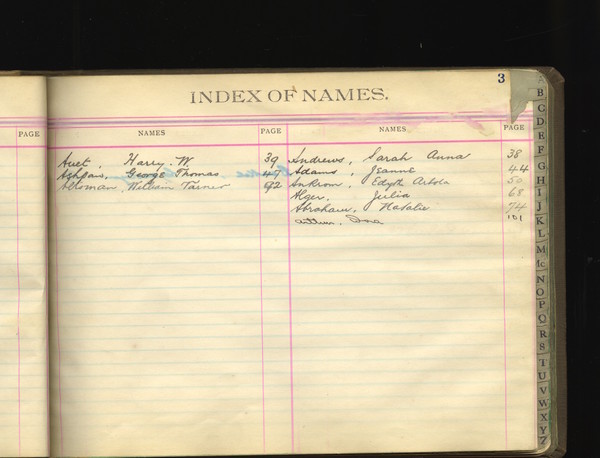 3
INDEX OF NAMES.
PAGE NAMES PAGE NAMES PAGE
Auet, Harry. W. 39
George Thomas 47
William Turner 92
Andrews, Sarah Anna 38
Adams, Jeanne 44
Ankrom, Edyth 50
Alger, Julia 68
Abraham, Natalie 74
101
A
B
C
D
E
F
G
H
I
J
K
L
M
Mc
N
O
P
Q
R
S
T
U
V
W
X
Y
Z